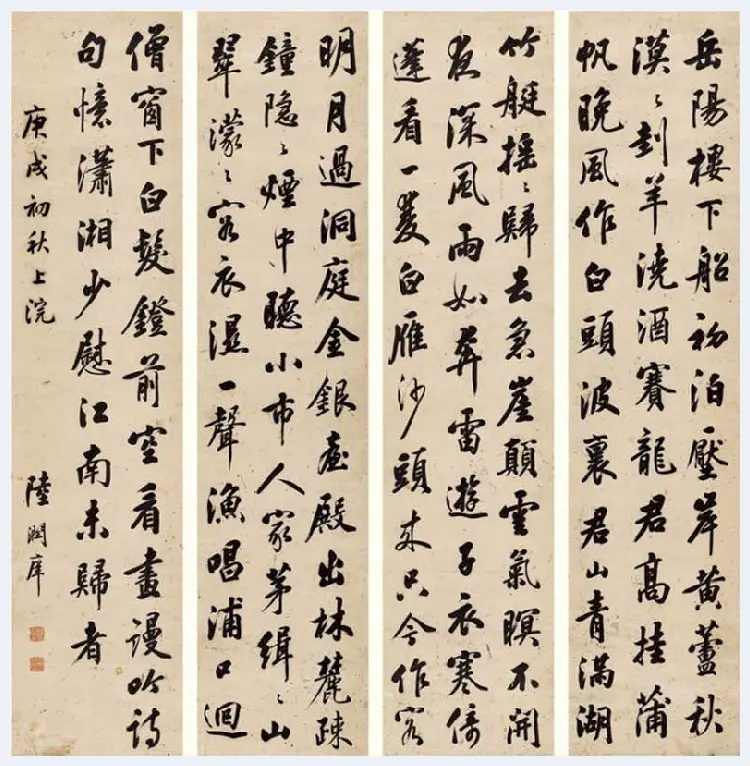 岳陽樓下船初泊壓岸黃蘆秋
漠〻刲羊澆酒賽龍君高挂蒲
帆晚風作白頭波裏君山青滿湖
竹艇搖〻歸去急崖顛雲氣暝不開
夜深風雨如奔雷遊子衣寒倚
蓬看一夔白雁沙頭來只今作客
明月過洞庭金銀臺殿出林麓疎
鐘隐〻煙中聽小市人家茅緝〻山
翠濛〻客衣濕一聲漁唱浦口迴
僧窗下白髮鐙前空看畫謾吟詩
句懷瀟湘少慰江南未歸者
庚戌初秋上浣
陸潤庠